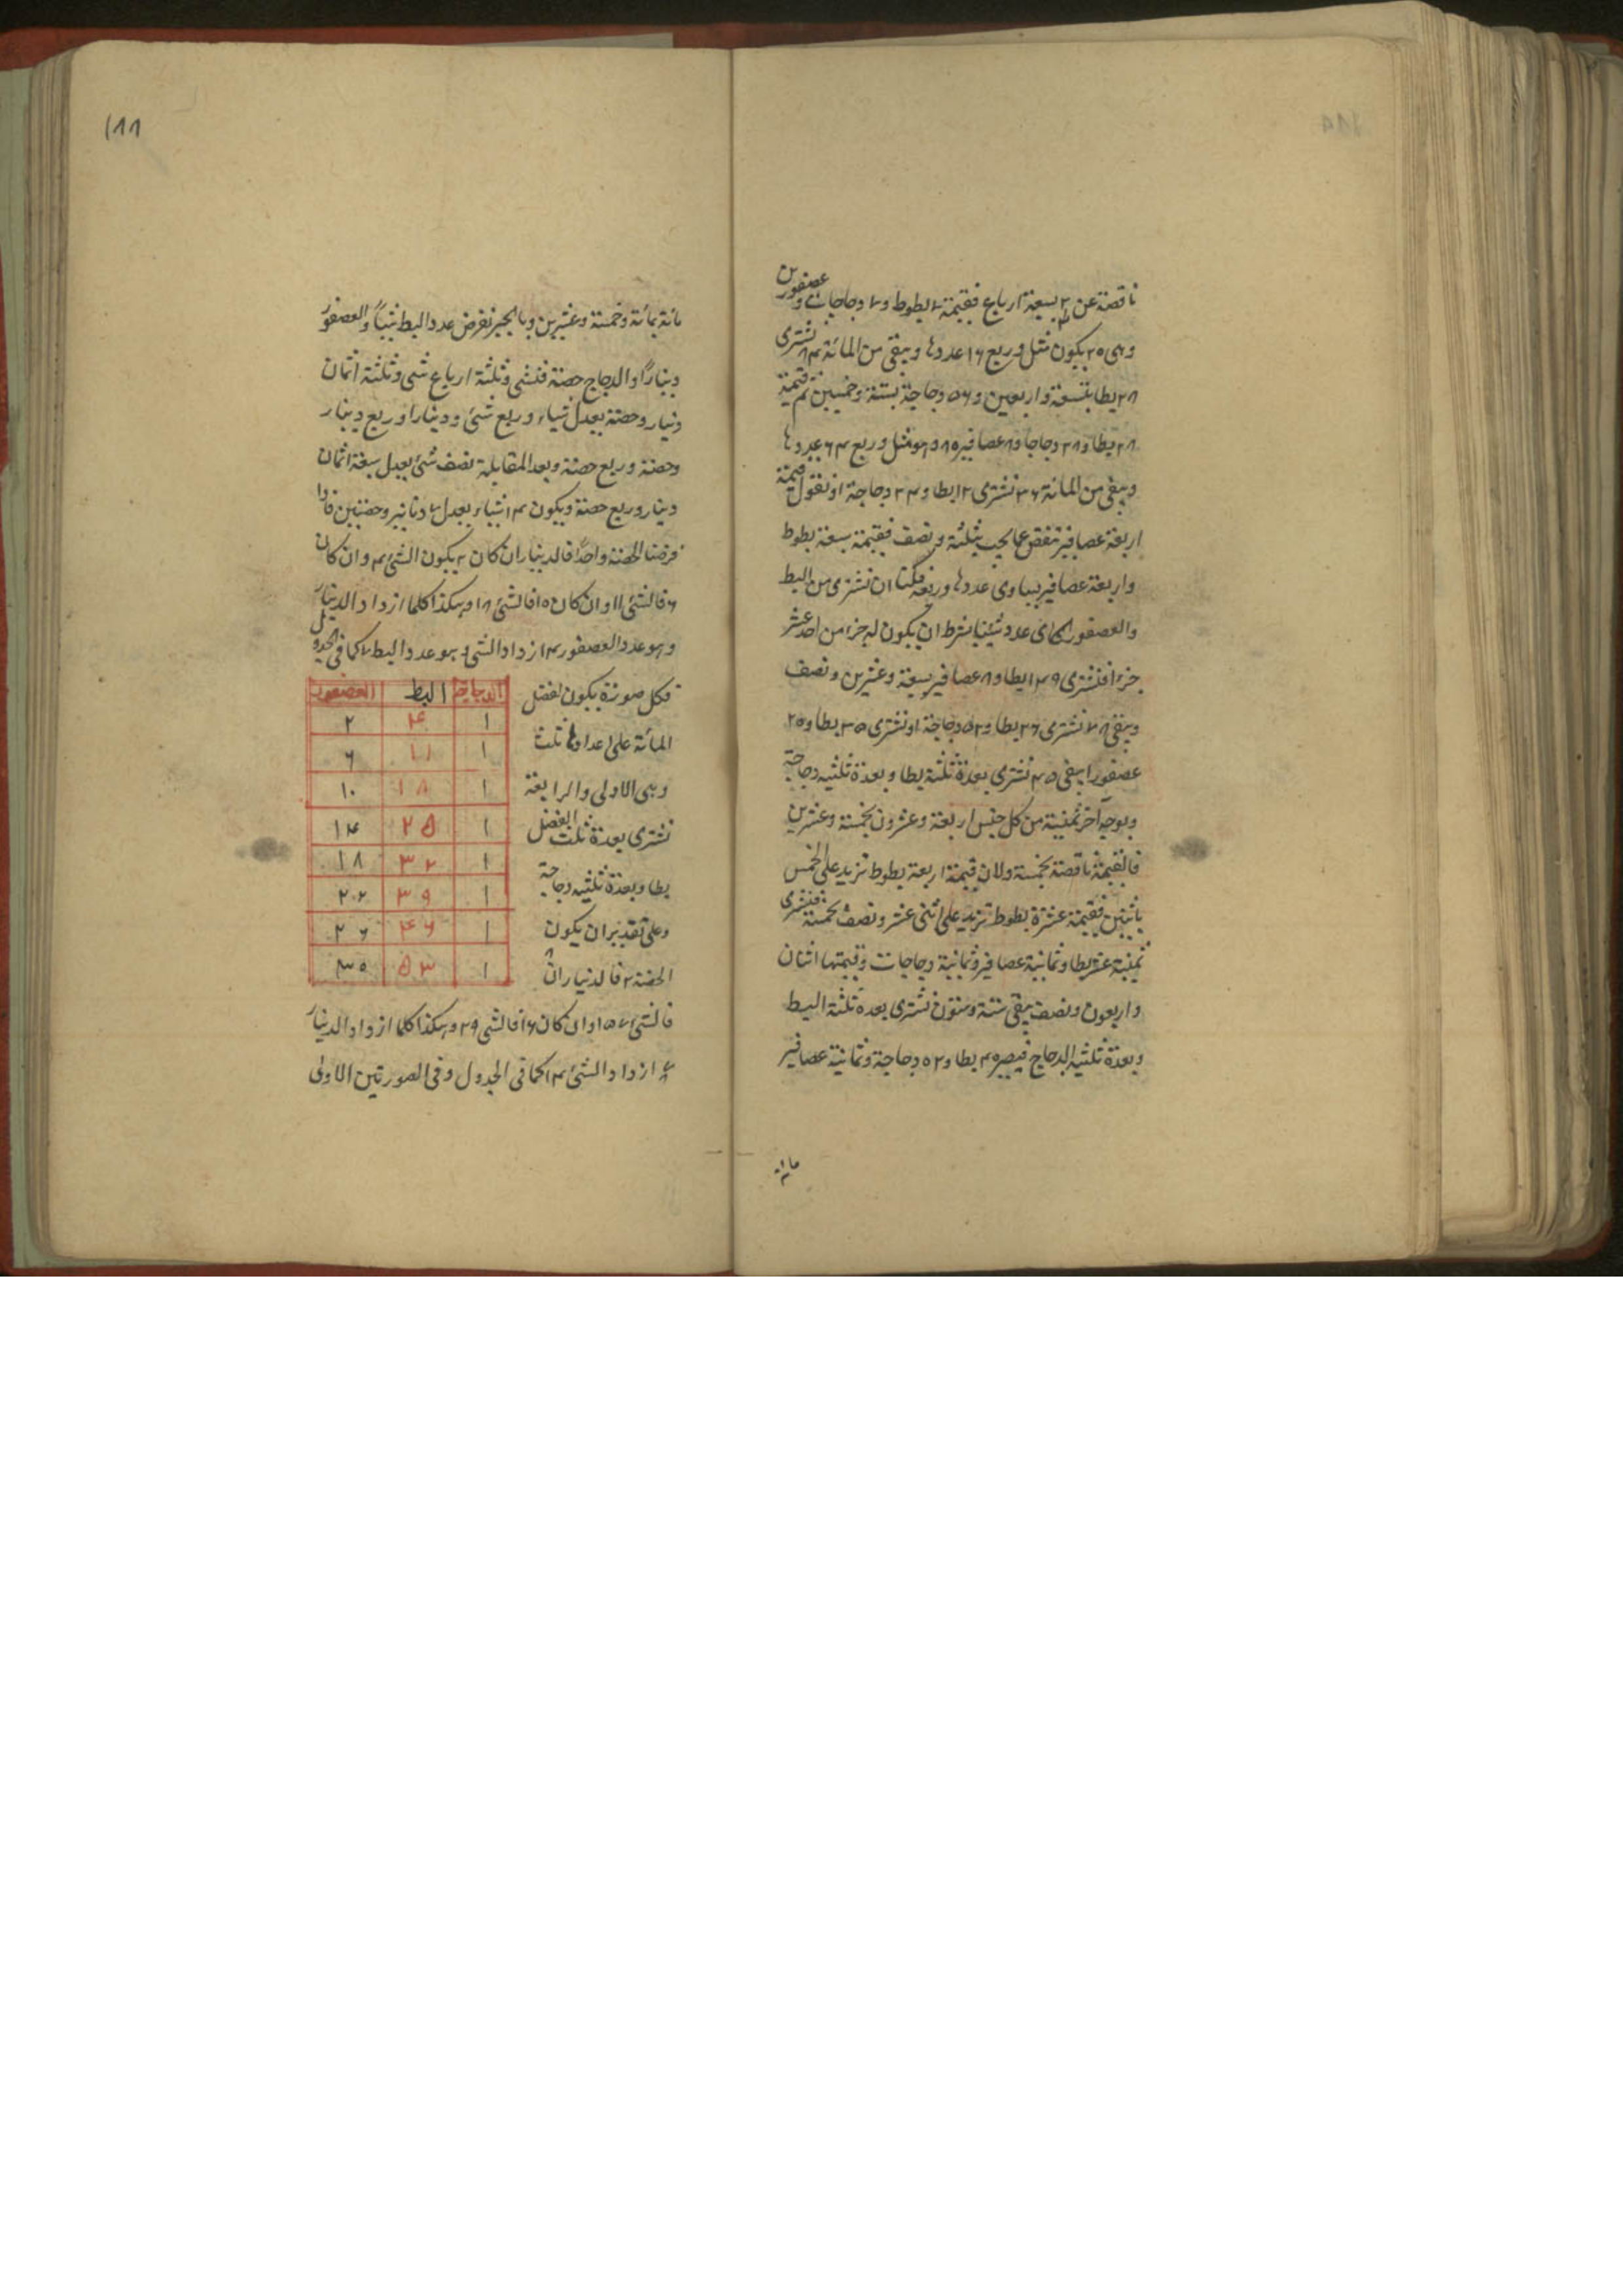 ناقصة عن ٢ بسبعة ارباع فقيمة ٧ بطوط و٧ دجاجات و عصفورين
وهى ٢٥ يكون مثل وربع ١٦ عددها ويبقى من المائة ٨٤ نشترى
٢٨ بطا بتسعة واربعين و٥٦ دجاجة بستة وخمسين ثم قيمة
٢٨ بطا و٢٨ دجاجا و٨ عصافير ٨٥ وهو مثل وربع ٦٤ عددها
ويبقى من المائة ٣٦ نشترى ١٢ بطا و٢٤ دجاجة او نقول قيمة
اربعة عصافير تنقص عما يجب بثلثة ونصف فقيمة سبعة بطوط
واربعة عصافير يساوى عددها وربعه فلنا ان نشترى من البط
والعصفور اى عدد شئنا بشرط ان يكون له جزء من احد عشر
جزءا فنشترى ١٤ بطا و٨ عصافير بسبعة وعشرين ونصف
ويبقى ٧٨ نشترى ٢٦ بطا و٥٢ دجاجة او نشترى ٣٥ بطا و٢٠
عصفورا يبقى ٤٥ نشترى بعدة ثلثه بطا وبعدة ثلثيه دجاجة
وبوجه آخر ثمنية من كل جنس اربعة وعشرون بخمسة وعشرين
فالقيمة ناقصة بخمسة ولان قيمة اربعة بطوط تزيد على الخمس
باثنين فقيمة عشرة بطوط تزيد على اثنى عشر ونصف بخمسة فنشترى
ثمنية عشر بطا وثمانية عصافير وثمانية دجاجات وقيمتها اثنان
واربعون ونصف يبقى ستة وستون نشترى بعدة ثلثه البط
وبعدة ثلثيه الدجاج فيصير ٤٠ بطا و٥٢ دجاجة وثمانية عصافير
مائة
١٨٨
مائة بمائة وخمسة وعشرين وبالجبر نفرض عدد البط شيئاً والعصفور
ديناراً والدجاج حصة فشئ وثلثة ارباع شئ وثلثة اثمان
دينار وحصة يعدل شياء وربع شئ ودينارا وربع دينار
وحصة وربع حصة وبعد المقابلة نصف شئ يعدل سبعة اثمان
دينار وربع حصة ويكون ٤ اشياء يعدل ٧ دنانير وحصتين فاذا
فرضنا الحصة واحدا فالدينار ان كان ٢ يكون الشئ ٤ وان كان
٦ فالشئ ١١ وان كان ١٠ فالشئ ١٨ وهكذا كلما ازداد الدينار
وهو عدد العصفور ٤ ازداد الشئ وهو عدد البط ٧ كما فى الجدول
فكل صورة يكون لفضل
المائة على اعدادها ثلث
وهى الاولى والرابعة
نشترى بعدة ثلث الفضل
بطا وبعدة ثلثيه دجاجة
وعلى تقدير ان يكون
الحصة ٢ فالدينار ان
الدجاجة البط العصفور
١ ٤ ٢
١ ١١ ٦
١ ١٨ ١٠
١ ٢٥ ١٤
١ ٣٢ ١٨
١ ٣٩ ٢٢
١ ٤٦ ٢٦
١ ٥٣ ٣٠
فالشئ ١٥ وان كان ١٦ فالشئ ٢٩ وهكذا كلما ازداد الدينار
٨ ازداد الشئ ١٤ كما فى الجدول وفى الصورتين الاولى